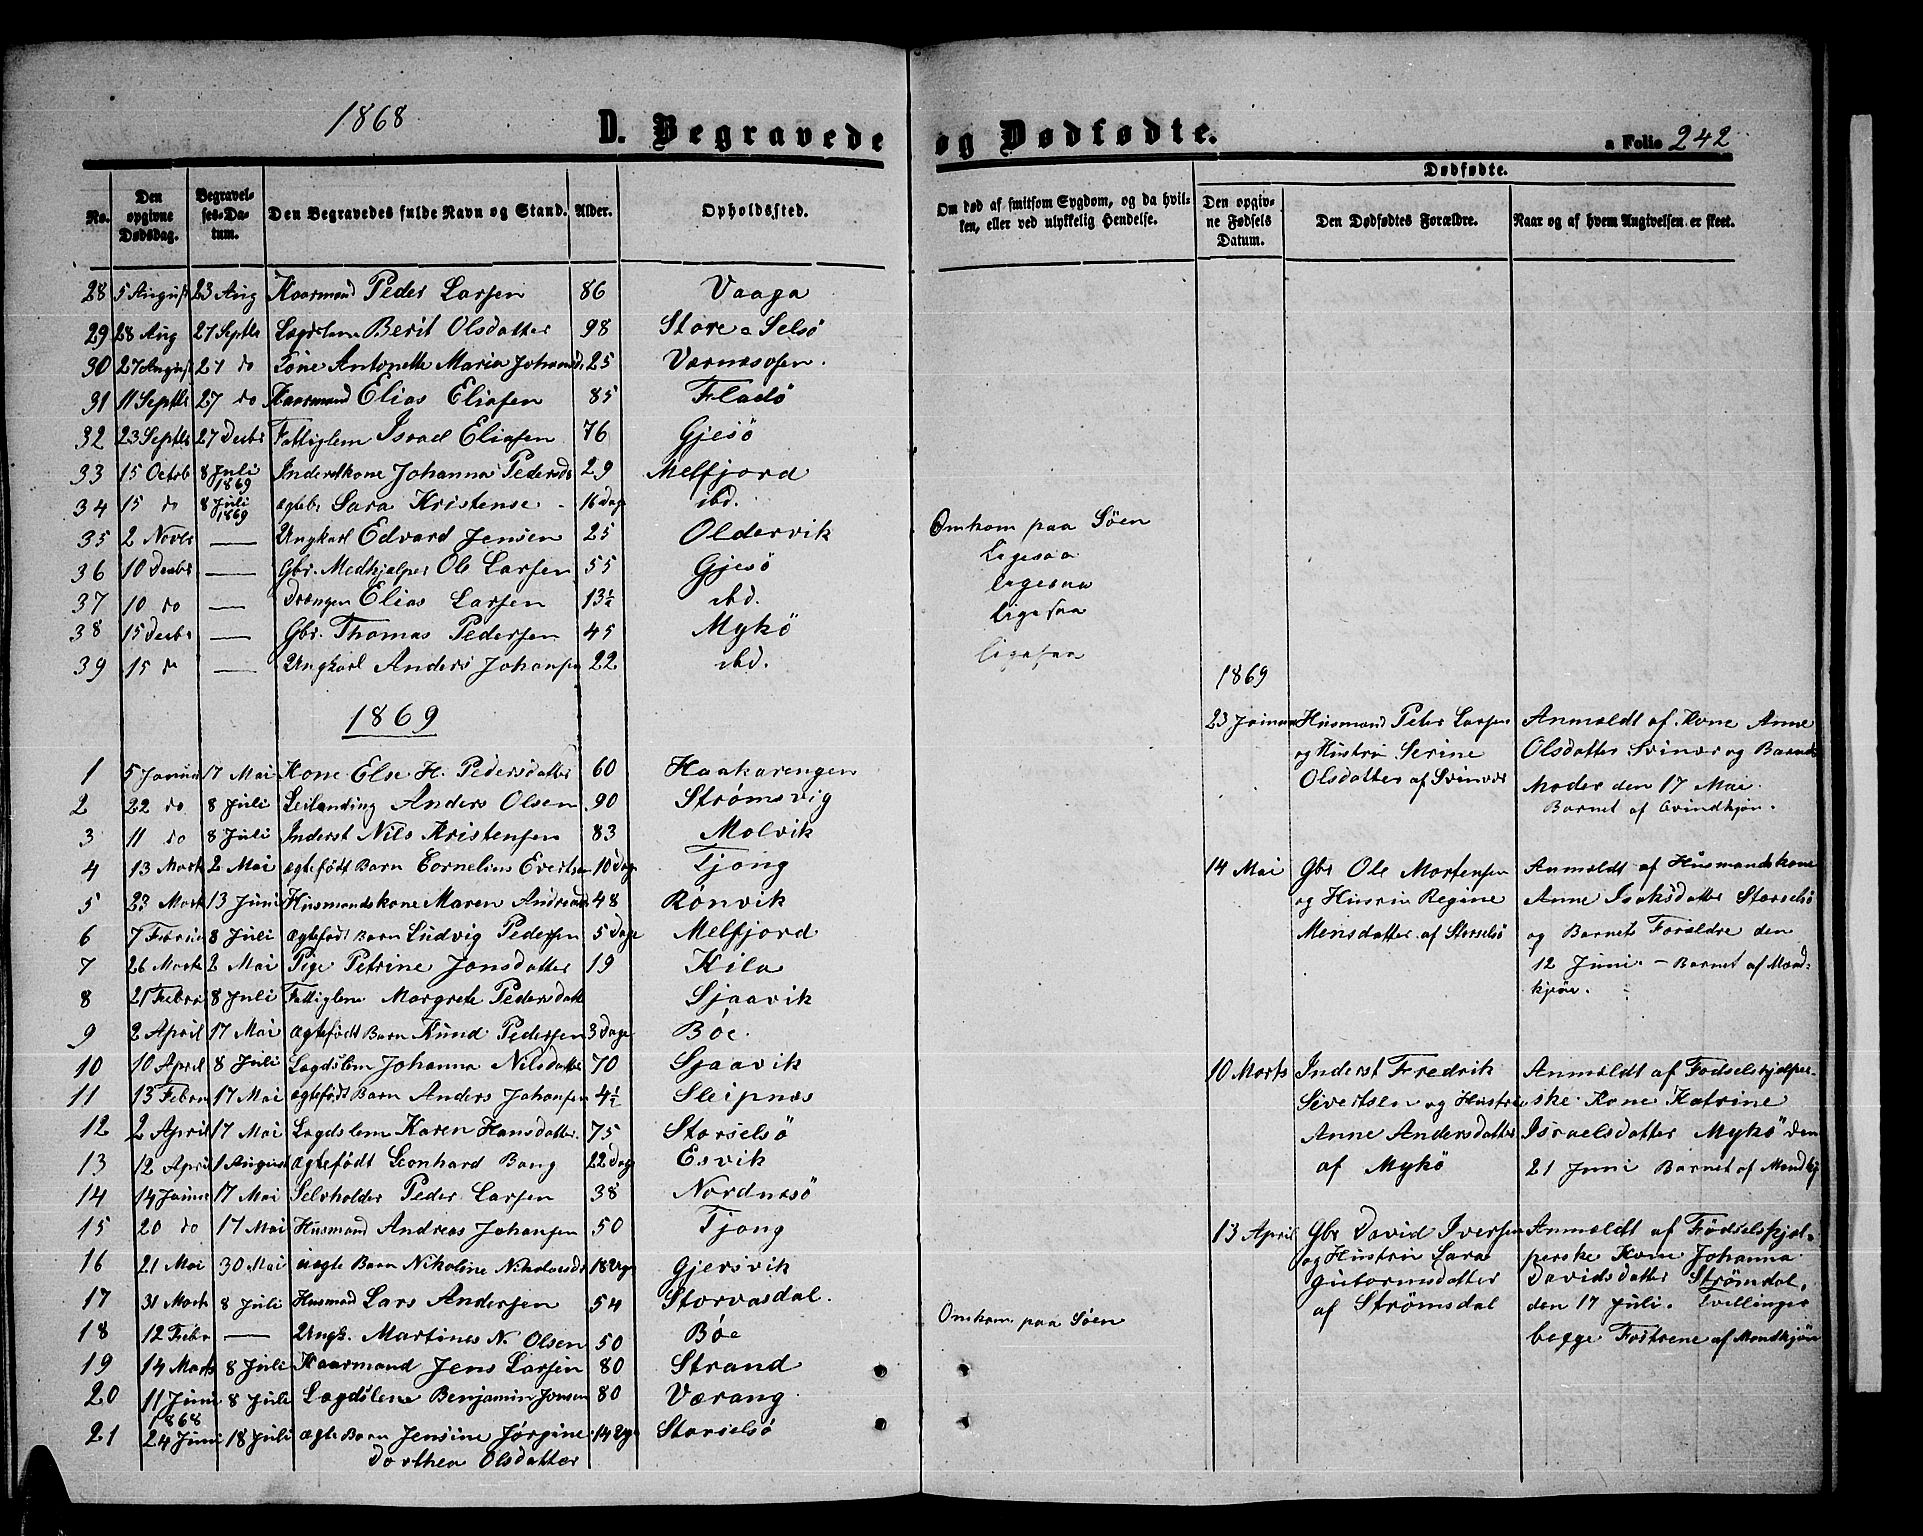 1868
D. Begravede og Dødfødte.
a Folio 242
No.
Den opgivne Dødsdag.
Begravelses-Datum.
Den Begravedes fulde Navn og Stand.
Alder.
Opholdssted.
Om død af smitsom Sygdom, og da hvilken, eller ved ulykkelig Hendelse.
Dødfødte.
Den opgivne Fødsels Datum.
Den Dødfødtes Forældre.
Naar og af hvem Angivelsen er skeet.
28 5 August 23 Aug Kaarmand Peder Larsen 86 Vaaga
29 28 Aug 27 Septbr Lægdslem Berit Olsdatter 98 Store Selsö
30 27 August 27 do Kone Antonette Maria Johansd. 25 Værnæsosen.
31 11 Septbr 27 do Kaarmand Elias Eliasen 85 Fladö
32 23 Septbr 27 Decbr Fattiglem Israel Eliasen 76 Gjesö
33 15 Octob 8 Juli 1869 Inderstkone Johanna Pedersd 29 Melfjord
34 15 do 8 Juli 1869 ægteb. Sara Kristense 16 Dage ibd.
35 2 Novbr — Ungkarl Edvard Jensen 25 Oldervik Omkom paa Söen
36 10 Decbr — Gbr. Medhjelper Ole Larsen 55 Gjesö Ligesaa
37 10 do — Drengen Elias Larsen 13½ ibd. Ligesaa
38 15 Decbr — Gbr. Thomas Pedersen 45 Mykö Ligesaa
39 15 do — Ungkarl Anders Johansen 22 ibd. Ligesaa
1869
1 5 Januar 17 Mai Kone Else H. Pedersdatter 60 Haakarengen
2 22 do 8 Juli Leilænding Anders Olsen 90 Strømsvig
3 11 do 8 Juli Inderst Nils Kristensen 83 Molvik
4 13 Marts 2 Mai ægtefødt Barn Cornelius Evertsen 10 Dage Tjong
5 23 Marts 13 Juni Husmandskone Maren Andreasd 48 Rönvik
6 7 Februar 8 Juli ægtefødt Barn Ludvig Pedersen 5 Dage Melfjord
7 26 Marts 2 Mai Pige Petrine Jonsdatter 19 Kila
8 21 Febra 8 Juli Fattiglem Margrete Pedersdatt Sjaavik
9 2 April 17 Mai ægtefödt Barn Knud Pedersen 3 Dage Böe.
10 10 April 8 Juli Lægdslem Johanna Nilsdatter 70 Sjaavik
11 13 Febru 17 Mai ægtefödt Barn Anders Johansen 4½ Sleipnæs
12 2 April 17 Mai Lægdslem Karen Hansdatter. 75 Storselsö
13 12 April 1 August ægtefödt Leonhard Bang 22 Dage Esvik
14 14 Januar 17 Mai Selvholder Peder Larsen 38 Nordnæsö
15 20 do 17 Mai Husmand Andreas Johansen 50 Tjong
16 21 Mai 30 Mai uægte Barn Nikoline Nikolaisd. 18 Uger Gjersvik
17 31 Marts 8 Juli Husmad Lars Andersen 54 Storvasdal.
18 12 Febr — Ungk. Martines N. Olsen 50 Böe Omkom paa Söen
19 14 Marts 8 Juli Kaarmand Jens Larsen 80 Strand
20 11 Juni 8 Juli Lægdslem Benjamin Jonsen 80 Værang
21 1868 24 Juni 18 Juli ægte Barn Jensine Jörgine 14 Uger Storselsö
Dorthea Olsdatter
1869
23 Januar Husmand Peter Larsen
og Hustru Serine
Olsdatter af Svinvær
Anmeldt af Kone Anne
Olsdatter Svinvær og Barnets
Moder den 17 Mai.
Barnet af Qvindkjön.
14 Mai Gbr Ole Mortensen
og Hustru Regine
Mensdatter af Storselsö
Anmeldt af Husmandskone
Anne Isaksdatter Storselsö
og Barnets Forældre den
12 Juni. – Barnet af Mand-
kjön.
10 Marts Inderst Fredrik
Sivertsen og Hustru
Anne Andersdatter
af Mykö
Anmeldt af Födselshjelper-
ske Kone Katrine
Israelsdatter Mykö den
21 Juni Barnet af Mandkj
13 April Gbr David Iversen
og Hustru Lara
Gutormsdatter
af Strömsdal
Anmeldt af Födselshjel-
perske Kone Johanna
Davidsdatter Strömdal,
den 17 Juli. Tvillinger
begge Fostrene af Mandkjön